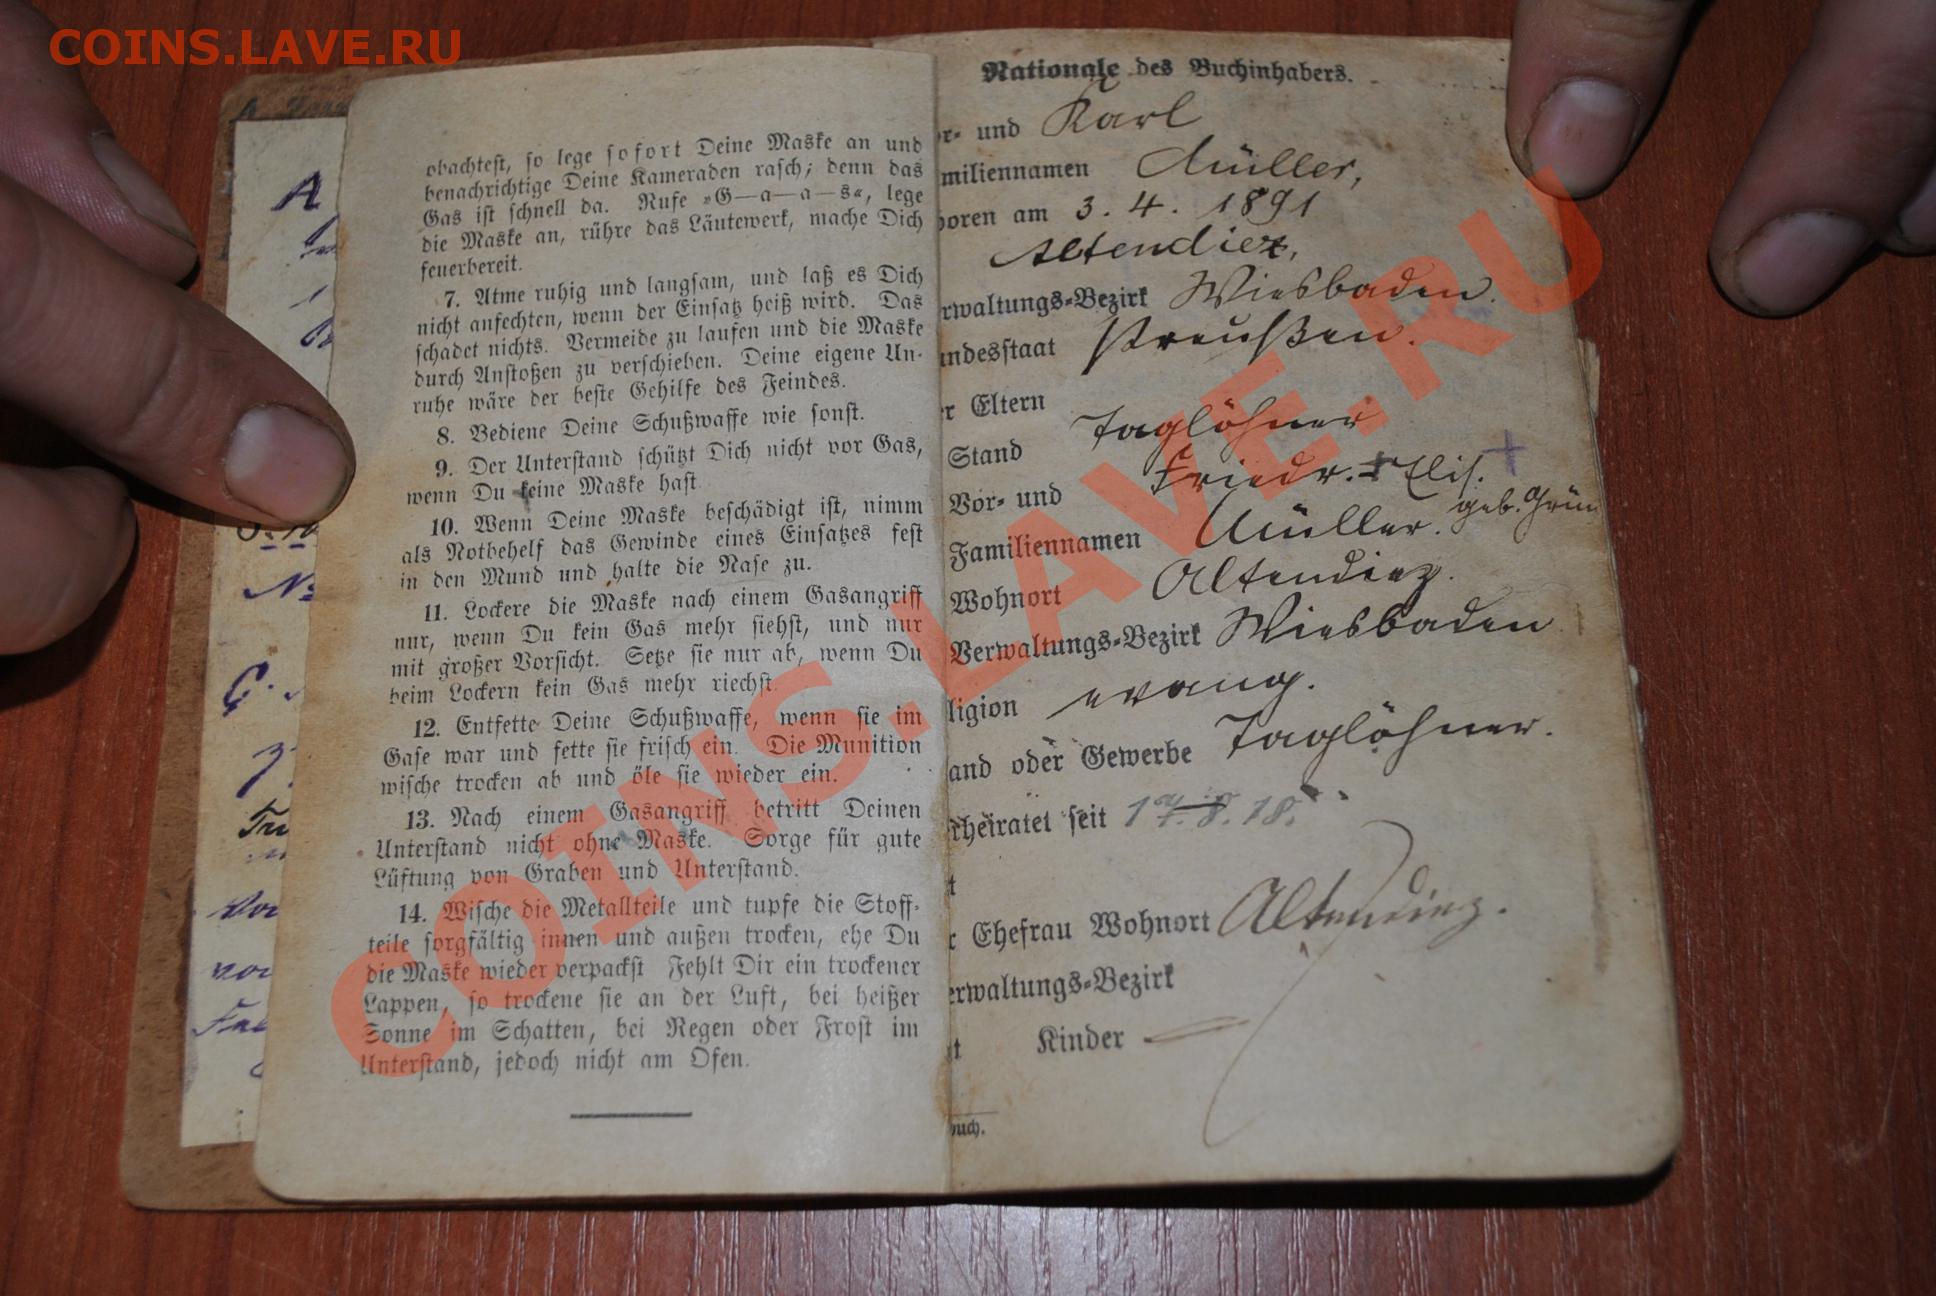 COINS.LAVE.RU
obachtest, so lege sofort Deine Maske an und
benachrichtige Deine Kameraden rasch; denn das
Gas ist schnell da. Rufe »G—a—a—s«, lege
die Maske an, rühre das Läutewerk, mache Dich
feuerbereit.
7. Atme ruhig und langsam, und laß es Dich
nicht anfechten, wenn der Einsatz heiß wird. Das
schadet nichts. Vermeide zu laufen und die Maske
durch Anstoßen zu verschieben. Deine eigene Un-
ruhe wäre der beste Gehilfe des Feindes.
8. Bediene Deine Schußwaffe wie sonst.
9. Der Unterstand schützt Dich nicht vor Gas,
wenn Du keine Maske hast
10. Wenn Deine Maske beschädigt ist, nimm
als Notbehelf das Gewinde eines Einsatzes fest
in den Mund und halte die Nase zu.
11. Lockere die Maske nach einem Gasangriff
nur, wenn Du kein Gas mehr siehst, und nur
mit großer Vorsicht. Setze sie nur ab, wenn Du
beim Lockern kein Gas mehr riechst.
12. Entfette Deine Schußwaffe, wenn sie im
Gase war und fette sie frisch ein. Die Munition
wische trocken ab und öle sie wieder ein.
13. Nach einem Gasangriff betritt Deinen
Unterstand nicht ohne Maske. Sorge für gute
Lüftung von Graben und Unterstand.
14. Wische die Metallteile und tupfe die Stoff-
teile sorgfältig innen und außen trocken, ehe Du
die Maske wieder verpackst Fehlt Dir ein trockener
Lappen, so trockene sie an der Luft, bei heißer
Sonne im Schatten, bei Regen oder Frost im
Unterstand, jedoch nicht am Ofen.
Nationale des Buchinhabers.
r- und Karl
miliennamen Müller,
boren am 3. 4. 1891
Altendiez,
rwaltungs-Bezirk Wiesbaden.
ndesstaat Preußen.
r Eltern
Stand Taglöhner
Vor- und Friedr. Elis.
Familiennamen Müller. geb. Grün
Wohnort Altendiez.
Verwaltungs-Bezirk Wiesbaden
ligion evang.
and oder Gewerbe Taglöhner.
rheiratet seit 17.8.18.
t
r Ehefrau Wohnort Altendiez.
erwaltungs-Bezirk
t Kinder
buch.
COINS.LAVE.RU